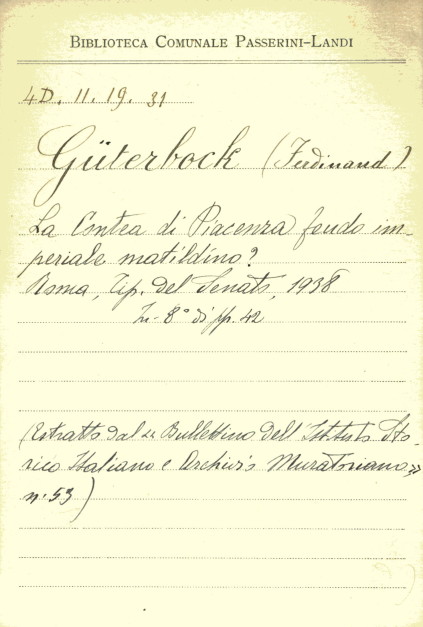 BIBLIOTECA COMUNALE PASSERINI-LANDI
4D. 11. 19. 31
Güterbock (Ferdinand)
La Contea di Piacenza feudo im-
periale matildino?
Roma, Tip. del Senato, 1938
In-8° di pp. 42
(Estratto dal «Bullettino dell'Istituto Sto-
rico Italiano e Archivio Muratoriano»
n. 53)